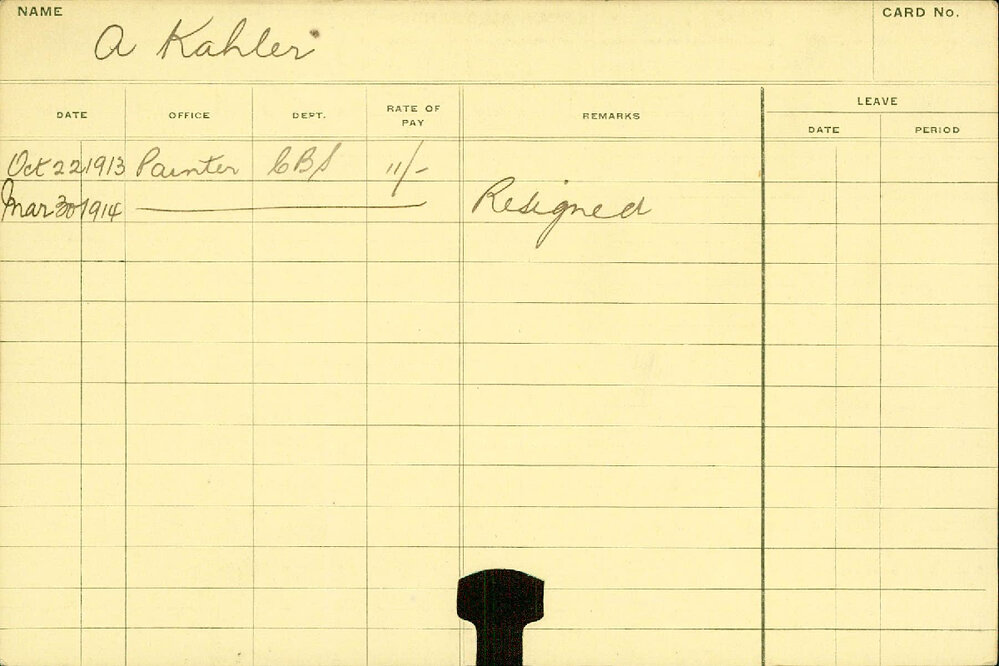 NAME
CARD No.
A Kahler
DATE OFFICE DEPT. RATE OF PAY REMARKS LEAVE
DATE PERIOD
Oct 22 1913 Painter CBS 11/-
Mar 30 1914 Resigned